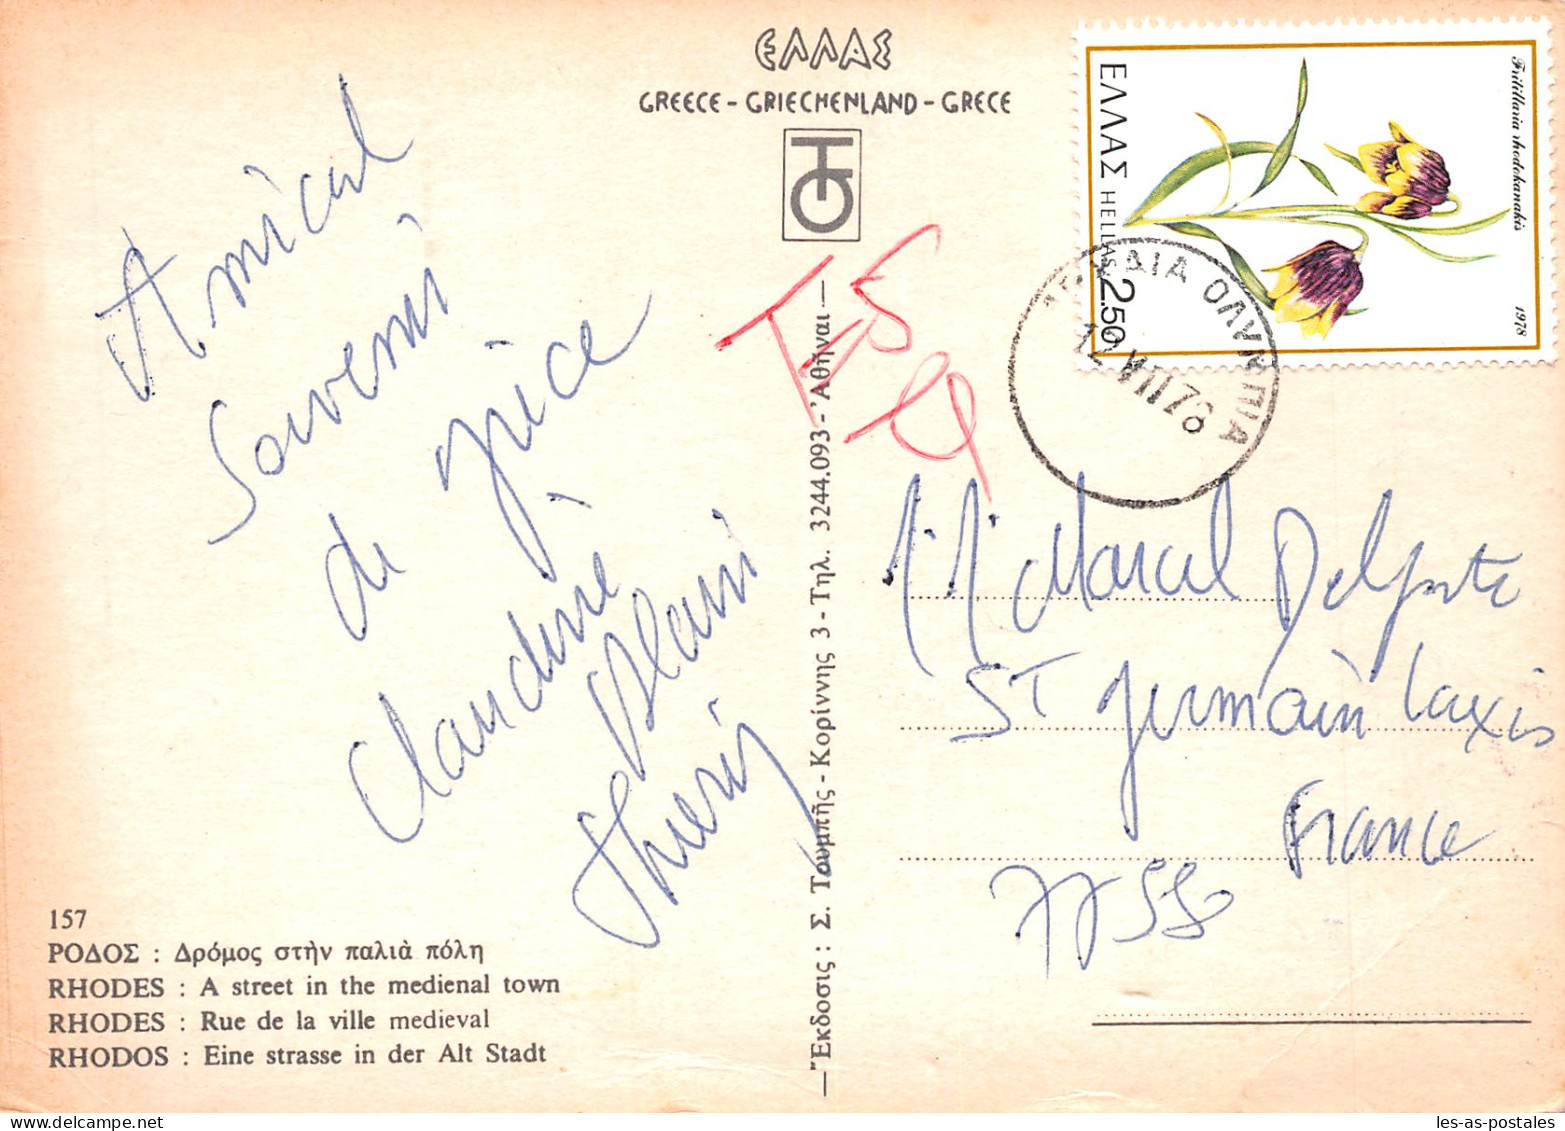 ΕΛΛΑΣ
GREECE - GRIECHENLAND - GRECE
ΕΛΛΑΣ HELLAS 2.50
Fritillaria rhodokanakis
1978
ΑΙΑ ΟΛΥΜΠΙΑ
12 VII 78
Amical
Souvenir
de Grèce
Claudine
Alain
Thierry
M Marcel Delporte
ST Germain Laxis
France
77
157
ΡΟΔΟΣ : Δρόμος στὴν παλιὰ πόλη
RHODES : A street in the medienal town
RHODES : Rue de la ville medieval
RHODOS : Eine strasse in der Alt Stadt
—Ἔκδοσις : Σ. Τουμπῆς - Κορίννης 3 - Τηλ. 3244.093 - Ἀθῆναι —
les-as-postales